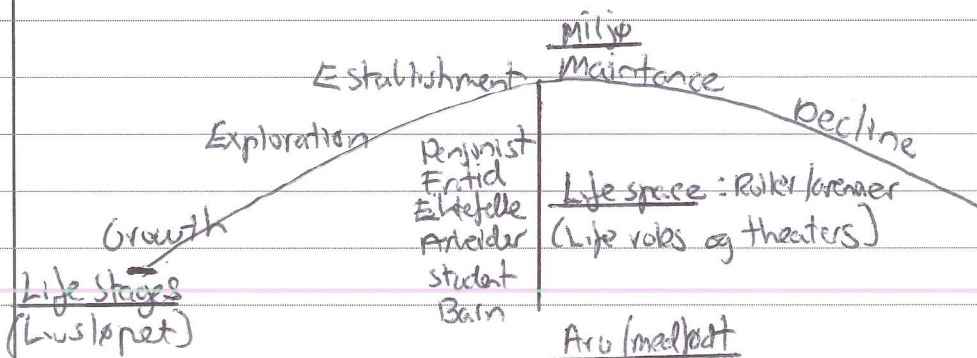 Miljø
Establishment Maintance
Exploration
Decline
Penjonist
Fritid
Ektefelle
Arbeider
Student
Barn
Life space: Roller/arenaer
(Life roles og theaters)
Growth
Life Stages
(Livsløpet)
Arv/medfødt